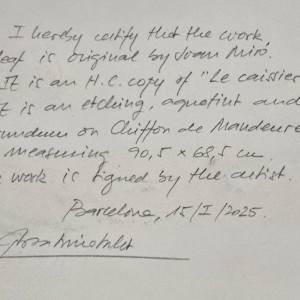 I hereby certify that the work,
leaf is original by Joan Miró.
It is an H.C. copy of "Le caissier
It is an etching, aquatint and
rundum on Chiffon de Mandeure
measuring 90,5 x 68,5 cm.
work is signed by the artist.
Barcelona, 15/I/2025.